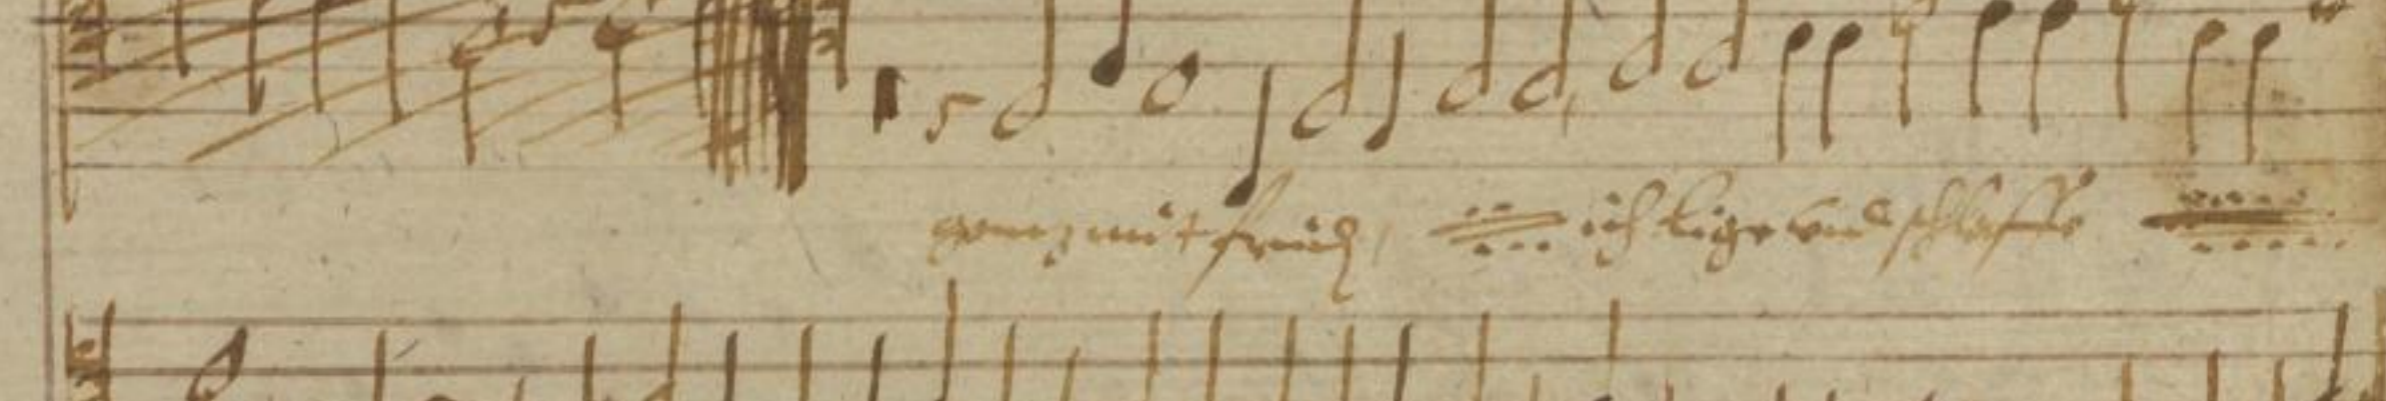 ganz mit fried, ich lige vnd schlaffe